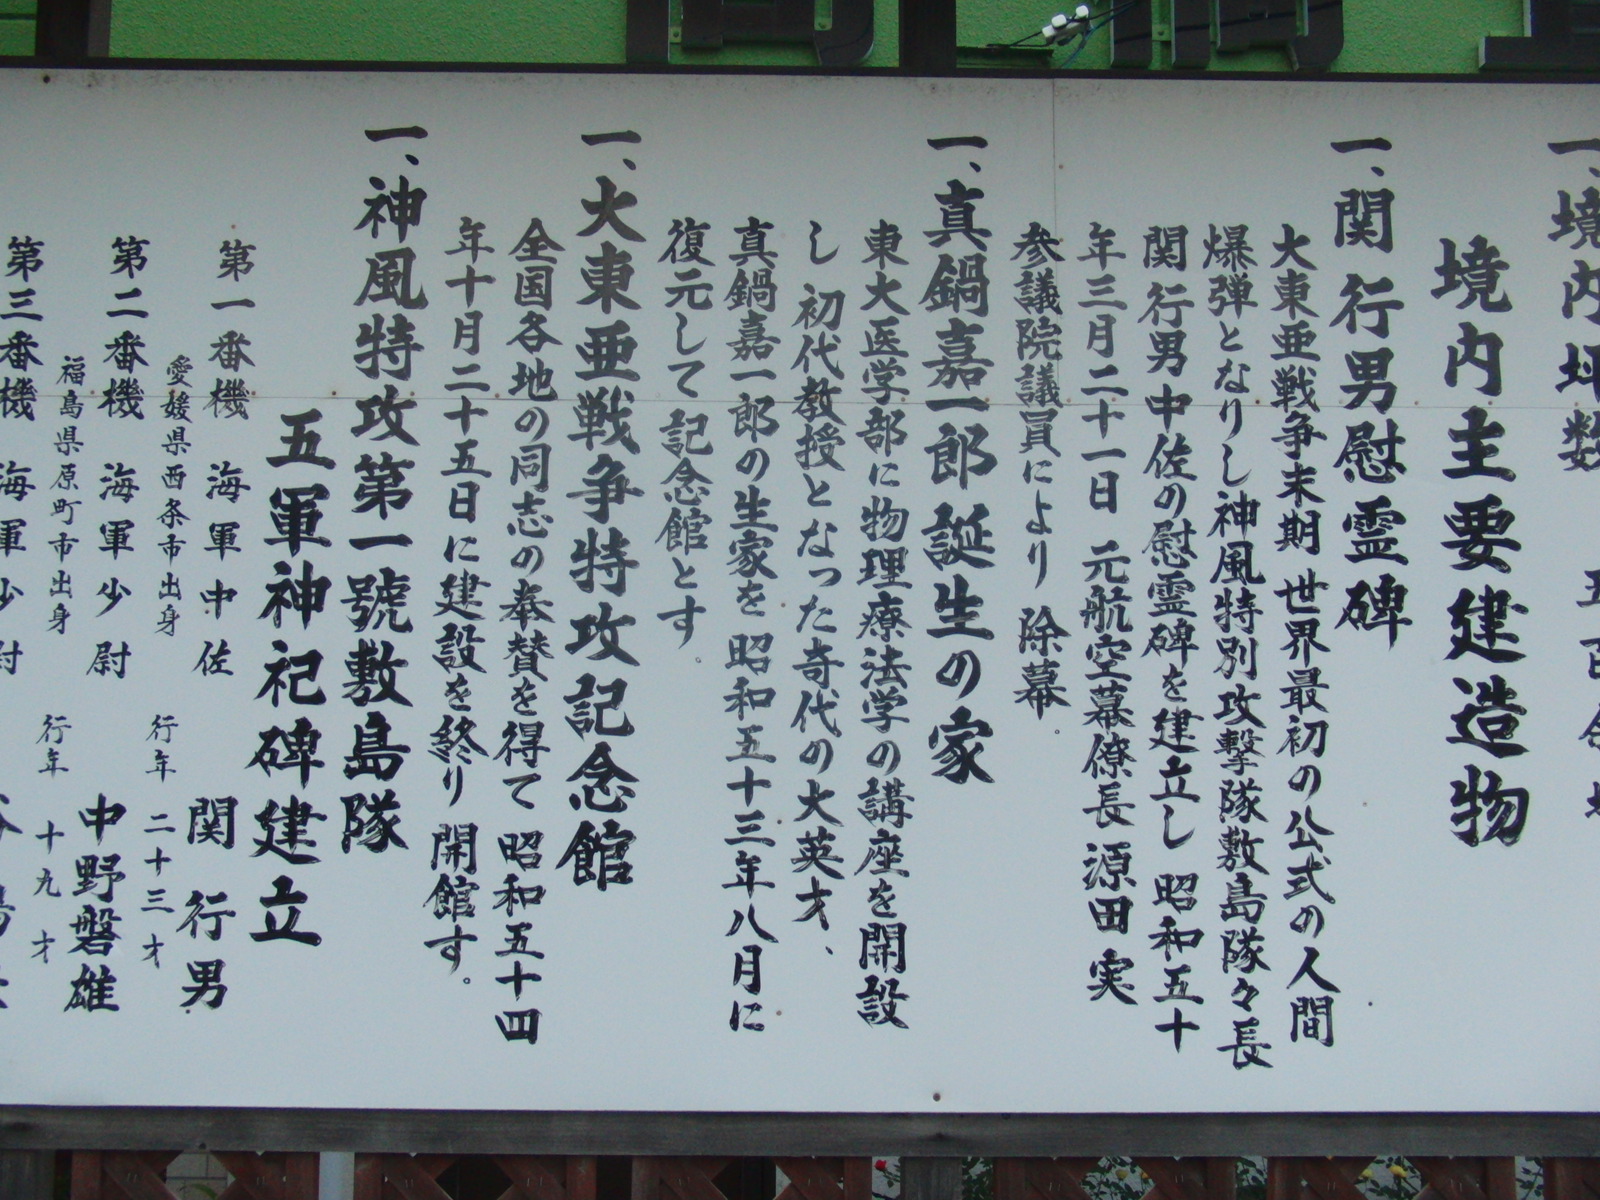 一、境内坪数
境内主要建造物
一、関行男慰霊碑
大東亜戦争末期 世界最初の公式の人間
爆弾となりし神風特別攻撃隊敷島隊々長
関行男中佐の慰霊碑を建立し 昭和五十
年三月二十一日 元航空幕僚長 源田実
参議院議員により 除幕。
一、真鍋嘉一郎誕生の家
東大医学部に物理療法学の講座を開設
し 初代教授となった奇代の大英才、
真鍋嘉一郎の生家を 昭和五十三年八月に
復元して 記念館とす。
一、大東亜戦争特攻記念館
全国各地の同志の奉賛を得て 昭和五十四
年十月二十五日に建設を終り 開館す。
一、神風特攻第一號敷島隊
五軍神祀碑建立
第一番機 海軍中佐 関行男
愛媛県西条市出身 行年 二十三才
第二番機 海軍少尉 中野磐雄
福島県原町市出身 行年 十九才
第三番機 海軍少尉